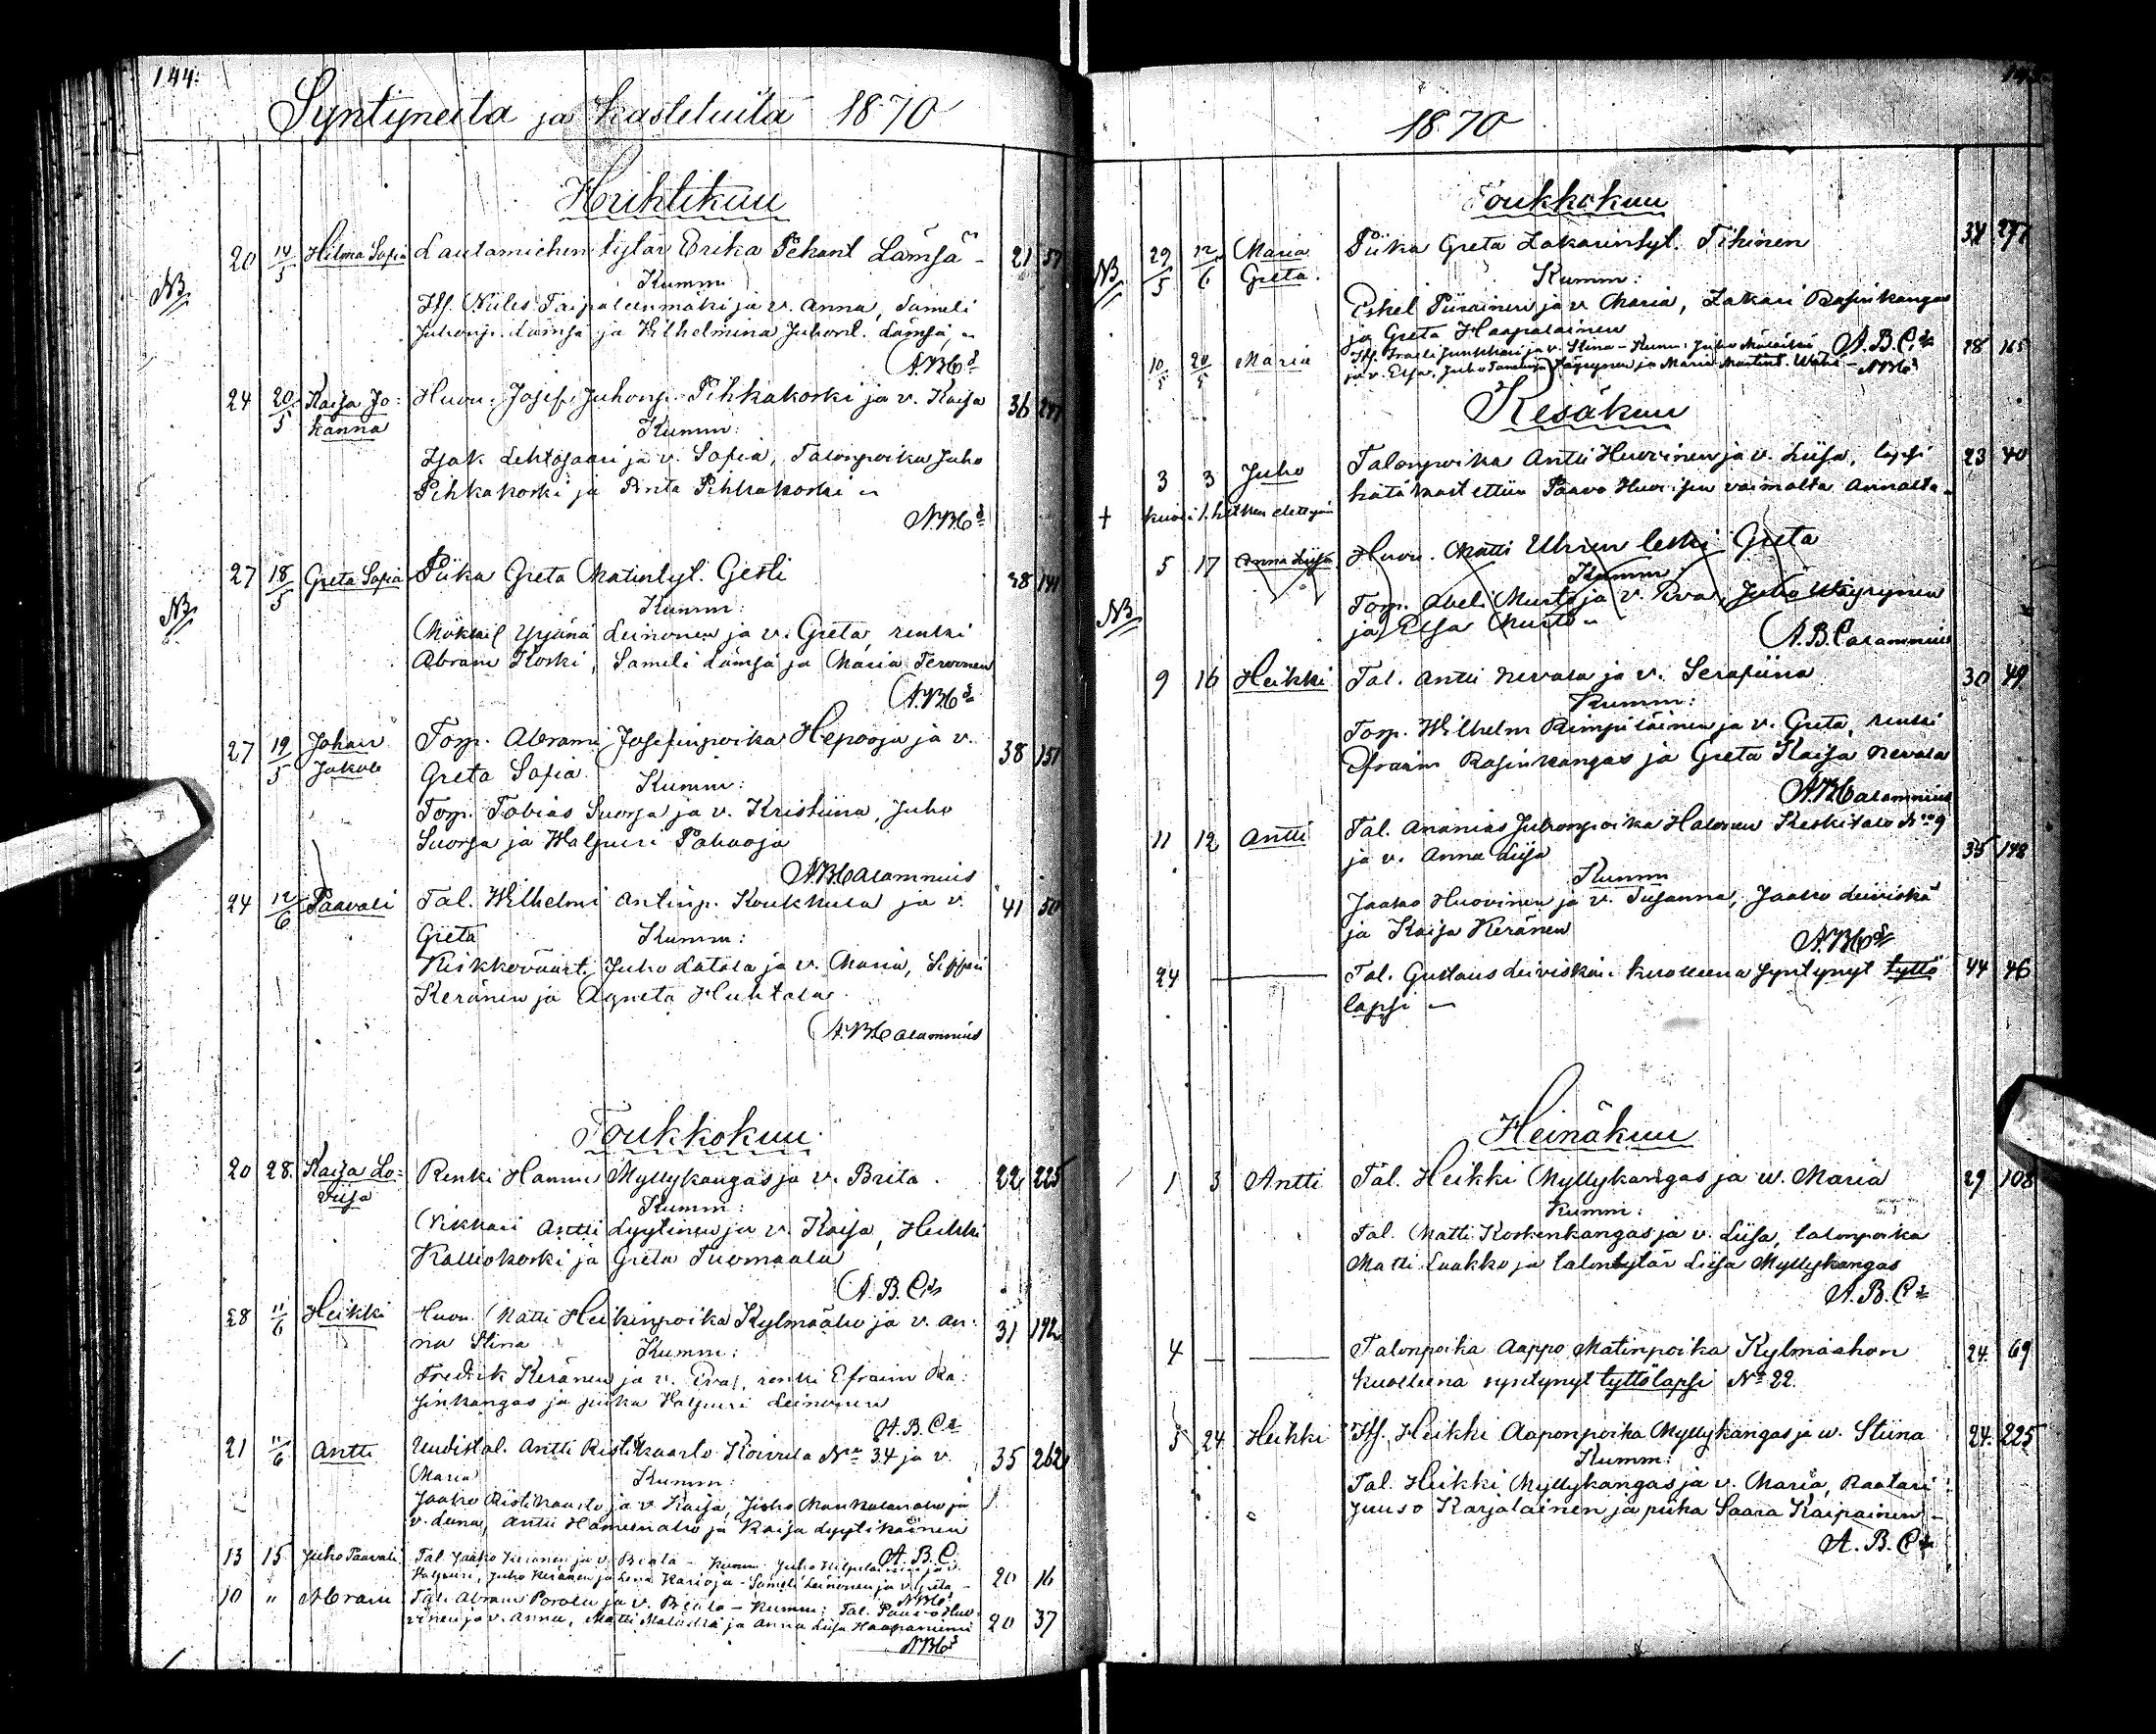 144.
Syntyneita ja Kastetuita 1870
Huhtikuu
20 14/5 Hilma Sofia Lautamiehen tytär Erika Pekant Lämsä 21 57
NB Kumm
Its. Niiles Taipaleenmäki ja v. Anna, Sameli
Juhonp. Lämsä ja Wilhelmina Juhont. Lämsä
A.B.C.
24 20/5 Kaisa Jo= Huon. Josef Juhonp. Pihkakoski ja v. Kaisa 36 277
hanna Kumm:
Isak Lehtosaari ja v. Sofia, Talonpoika Juho
Pihkakoski ja Brita Pihkakoski
A.B.C.
27 18/5 Greta Sofia Piika Greta Matintyt. Gesti 38 141
NB Kumm:
Mökkil. Yrjänä Leinonen ja v. Greta, renki
Abram Koski, Sameli Lämsä ja Maria Tervonen
A.B.C.
27 19/5 Johan Torp. Abram Josefinpoika Hepooja ja v. 38 151
Jakob Greta Sofia. Kumm:
Torp. Tobias Suorsa ja v. Kristiina, Juho
Suorsa ja Walpuri Pahaoja
A.B.Calamnius
24 12/6 Paavali Tal. Wilhelmi Antinp. Koukkula ja v. 41 50
Greta Kumm:
Kirkkoväärt. Juho Latola ja v. Maria, Sippari
Keränen ja Agneta Huhtala
A.B.Calamnius
Toukkokuu
20 28. Kaisa Lo= Renki Hannu Myllykangas ja v. Brita 22 225
visa Kumm:
Nikkari Antti Lyytinen ja v. Kaisa, Heikki
Kalliokoski ja Greta Tuomaala
A.B.C.
28 11/6 Heikki Huon. Matti Heikinpoika Kylmäaho ja v. An= 31 192
na Stina Kumm:
Fredrik Keränen ja v. Eva, renki Efraim Ra=
sinkangas ja piika Walpuri Leinonen
A.B.C.
21 11/6 Antti Uudistal. Antti Ristikaarto Koivula No 34 ja v. 35 262
Maria Kumm:
Jaako Ristikaarto ja v. Kaisa, Juho ja
v. Leena, Antti ja Kaisa Lyytikäinen
A.B.C.
13 15 Juho Paavali Tal. Jaako Keränen ja v. Beata - Kumm: Juho ja v.
Walpuri, Juho Keränen ja Lena Karioja - Sameli Leinonen ja v. Greta 20 16
A.B.C.
10 " Abram Tal. Abram Porola ja v. Beata - Kumm: Tal. Paavo Huo=
vinen ja v. Anna, Matti Määttä ja Anna Liisa Haapaniemi 20 37
A.B.C.
1870
Toukkokuu
NB 29/5 12/6 Maria Piika Greta Zakarintyt. Tihinen 34 277
Greta. Kumm:
Eskel Piirainen ja v Maria, Zakari Rasinkangas
ja Greta Haapalainen
A.B.C.
10/5 20/5 Maria Its. Iraeli Junkkari ja v. Stina - Kumm: Juho Määttä 28 165
ja v. Elsa, Juho Väyrynen ja Maria Martint. Wähä - A.B.C.
Kesäkuu
3 3 Juho Talonpoika Antti Huovinen ja v. Liisa, lapsi 23 40
hätäkastettiin Paavo Huovisen vaimolta Annalta
† kuoli 1. hetken elettyän
5 17 Anna Liisa Huon. Matti Uhnen leski Greta
Kumm:
NB Torp. Abeli Musto ja v. Eva, Juho Väyrynen
ja Elsa Musto
A.B.Calamnius
9 16 Heikki Tal. Antti Nevala ja v. Serafiina 30 49
Kumm:
Torp. Wilhelm Rimpiläinen ja v. Greta, renki
Efraim Rasinkangas ja Greta Kaisa Nevala
A.B.Calamnius
11 12 Antti Tal. Ananias Juhonpoika Halonen Keskitalo No 9
ja v. Anna Liisa 35 148
Kumm
Jaako Huovinen ja v. Susanna, Jaako Leiviskä
ja Kaisa Keränen
A.B.C.
24 — Tal. Gustaus Leiviskän kuolleena syntynyt tyttö 44 46
lapsi
Heinäkuu
1 3 Antti Tal. Heikki Myllykangas ja w. Maria 29 108
Kumm:
Tal. Matti Koskenkangas ja v. Liisa, talonpoika
Matti Laakko ja talontytär Liisa Myllykangas
A.B.C.
4 — — Talonpoika Aappo Matinpoika Kylmäahon 24. 69
kuolleena syntynyt tyttölapsi No 22.
5 24 Heikki Its. Heikki Aaponpoika Myllykangas ja w. Stiina 24. 225
Kumm:
Tal. Heikki Myllykangas ja v. Maria, Raatari
Juuso Karjalainen ja piika Saara Karpainen
A.B.C.